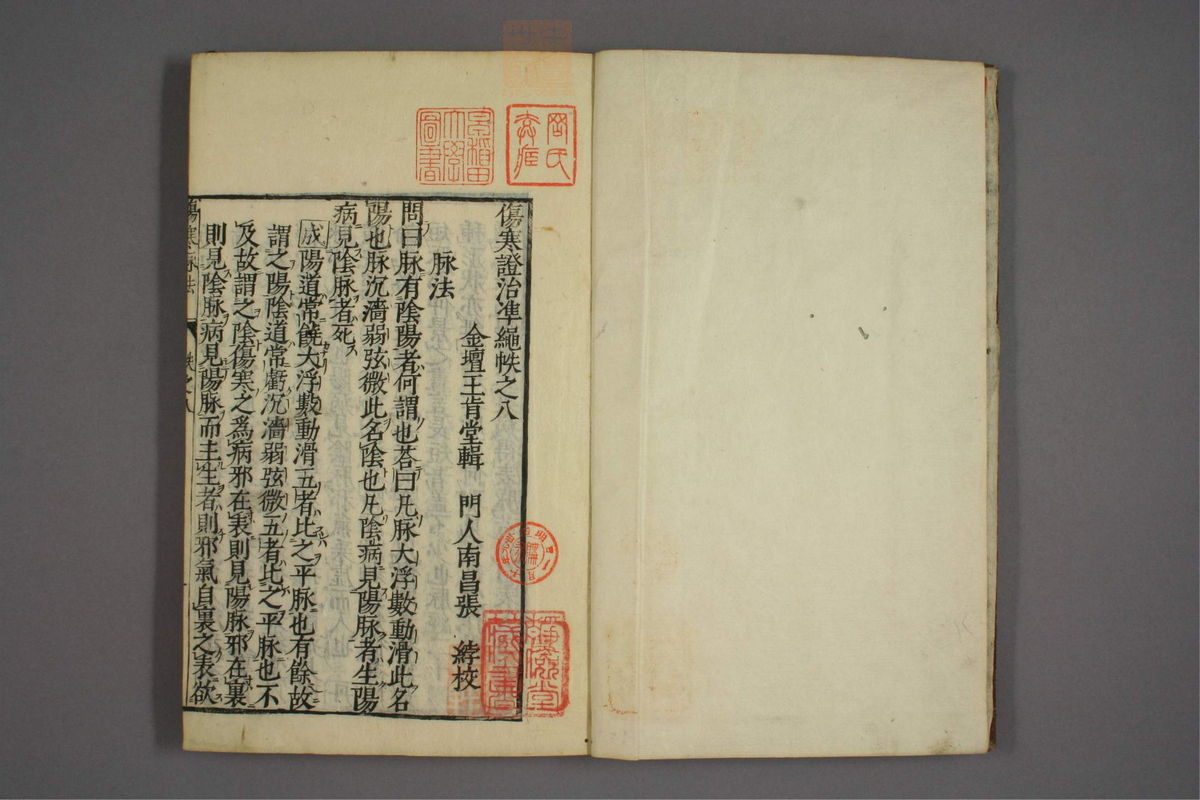 傷寒證治準繩帙之八
金壇王肯堂輯　門人南昌張　綍校
脉法
問曰脉有陰陽者何謂也荅曰凡脉大浮數動滑此名
陽也脉沉濇弱弦微此名陰也凡陰病見陽脉者生陽
病見陰脉者死
成陽道常饒大浮數動滑五者比之平脉也有餘故
謂之陽陰道常虧沉濇弱弦微五者比之平脉也不
及故謂之陰傷寒之爲病邪在表則見陽脉邪在裏
則見陰脉病見陽脉而主生者則邪氣自裏之表欲
傷寒脉法　帙之八
早稻田大學圖書